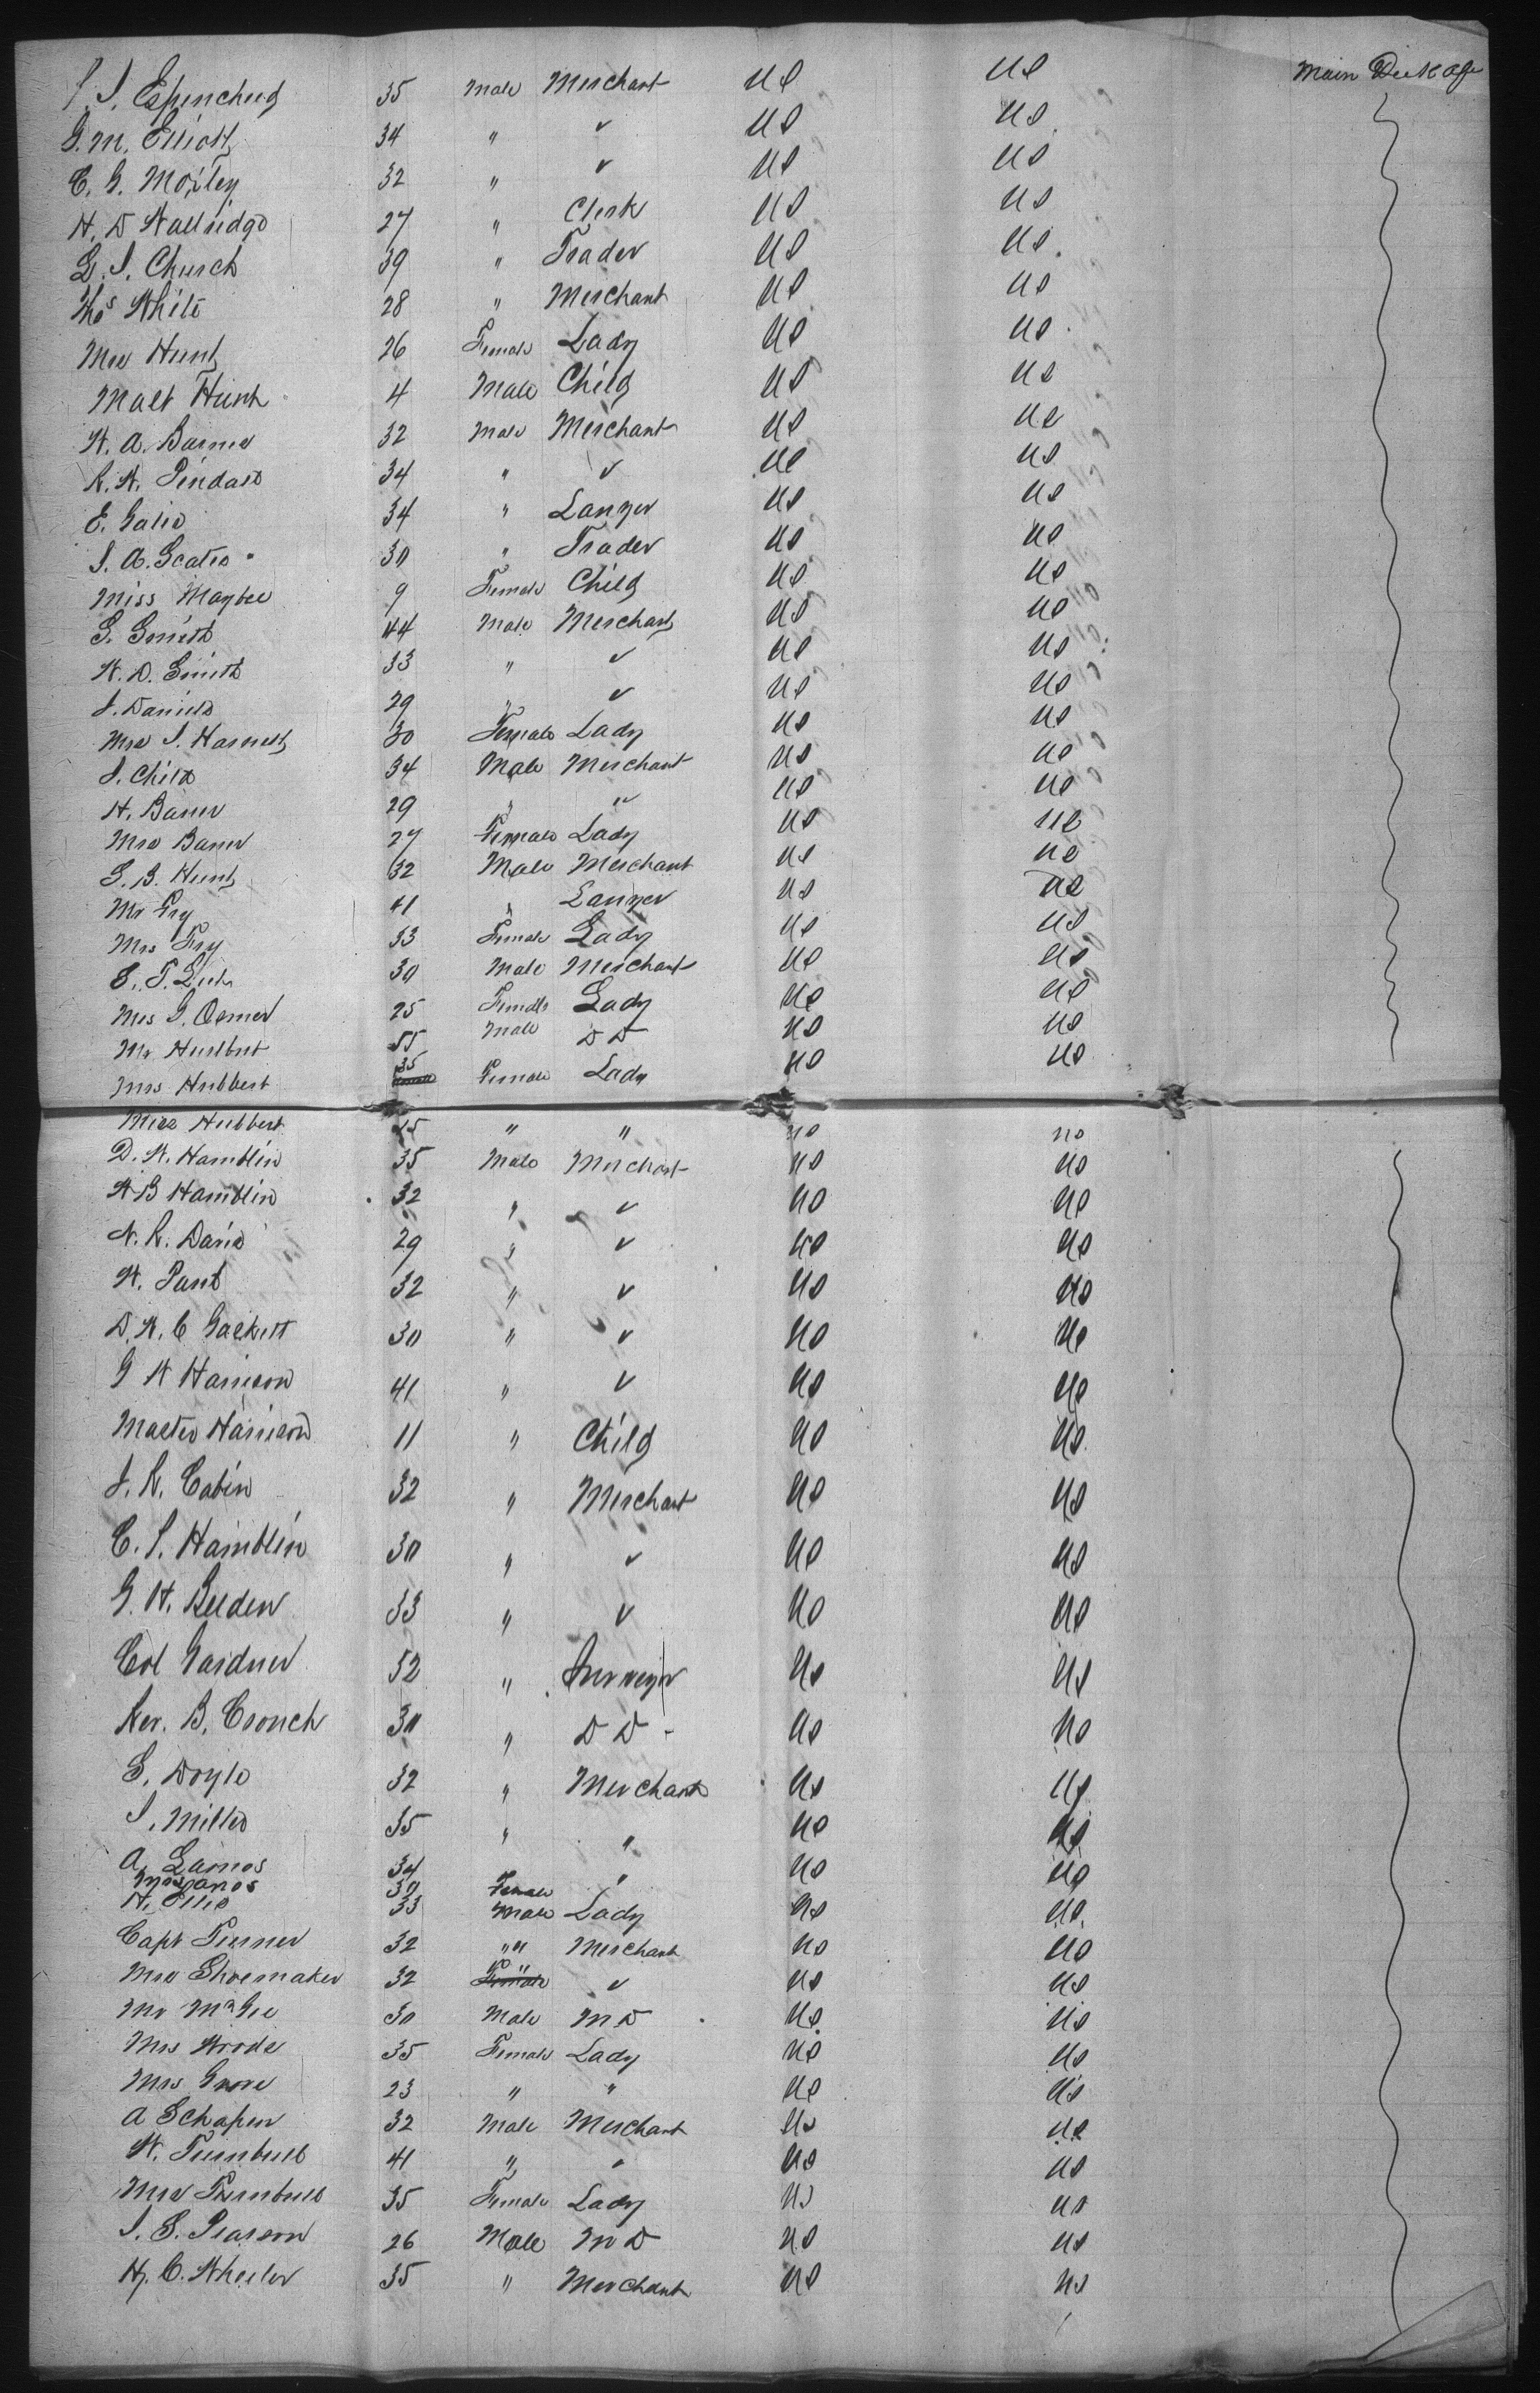 J. S. Espencheid 35 Male Merchant US US Main Deck Aft
G. M. Elliott 34 " " US US
C. G. Moxley 32 " " US US
H. D Wallridge 27 " Clerk US US
L. S. Church 39 " Trader US US
Thos White 28 " Merchant US US
Mrs Hunt 26 Female Lady US US
Mast Hunt 4 Male Child US US
W. A. Barnes 32 Male Merchant US US
R. W. 34 " " US US
E. 34 " Lawyer US US
S. A. 30 " Trader US US
Miss Maybee 9 Female Child US US
G. Smith 44 Male Merchant US US
W. D. Smith 33 " " US US
J. Daniels 29 " " US US
Mrs S. Harnett 30 Female Lady US US
J. Child 34 Male Merchant US US
H. Bauer 29 " " US US
Mrs Bauer 27 Female Lady US US
S. B. Hunt 32 Male Merchant US US
Mr Fry 41 " Lawyer US US
Mrs Fry 33 Female Lady US US
E. T. 30 Male Merchant US US
Mrs G. 25 Female Lady US US
Mr Hurlbut 55 Male DD US US
Mrs Hubbert 35 Female Lady US US
Miss Hubbert 15 " " US US
D. W. Hamblin 35 Male Merchant US US
W B Hamblin 32 " " US US
N. R. Davis 29 " " US US
W. 32 " " US US
D. W. C Sackett 30 " " US US
G W Harrison 41 " " US US
Master Harrison 11 " Child US US
J. R. Cabin 32 " Merchant US US
C. S. Hamblin 30 " " US US
G. H. Belden 33 " " US US
Col Gardner 52 " Surveyor US US
Rev. B. Crouch 30 " DD US US
S. Doyle 32 " Merchant US US
S. Miller 35 " " US US
A. Lamos 34 " US US
Mrs Lamos 30 Female
H. Ellis 33 Male Lady US US
Capt Turner 32 " " Merchant US US
Mrs Shoemaker 32 " US US
Mr McGee 30 Male MD US US
Mrs Woode 35 Female Lady US US
Mrs Grove 23 " " US US
A Schafer 32 Male Merchant US US
W. Turnbull 41 " " US US
Mrs Turnbull 35 Female Lady US US
J. S. Pearson 26 Male MD US US
H. C. Wheeler 35 " Merchant US US